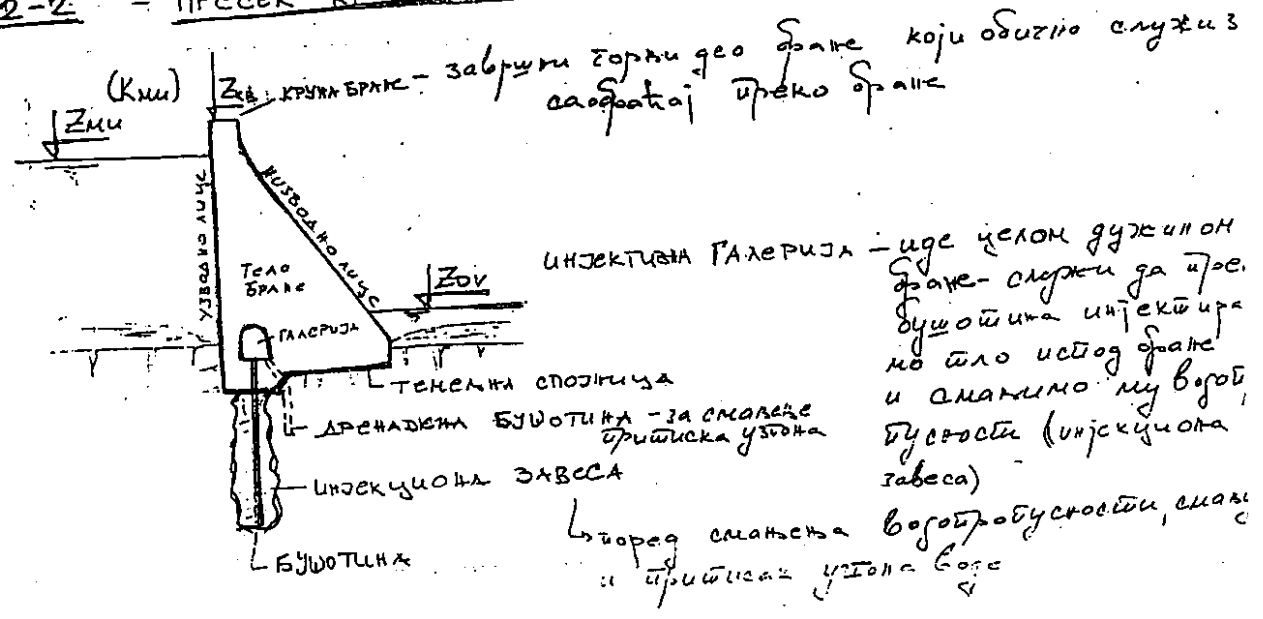 2-2 - ПРЕСЕК
(Кми)
Zкв
КРУНА БРАНЕ - завршни горњи део бране који обично служи з
саобраћај преко бране
Zми
УЗВОДНО ЛИЦЕ
НИЗВОДНО ЛИЦЕ
Тело
БРАНЕ
ГАЛЕРИЈА
Zov
ИНЈЕКТИВНА ГАЛЕРИЈА - иде целом дужином
бране - служи да пре
бушотина инјектира
мо тло испод бране
и смањимо му водоп
пусности (инјекциона
завеса)
ТЕМЕЉНА СПОЈНИЦА
ДРЕНАЖНА БУШОТИНА - за смањење
притиска узгона
ИНЈЕКЦИОНА ЗАВЕСА
поред смањења водопропусности, смањ
и притисак узгона воде
БУШОТИНА